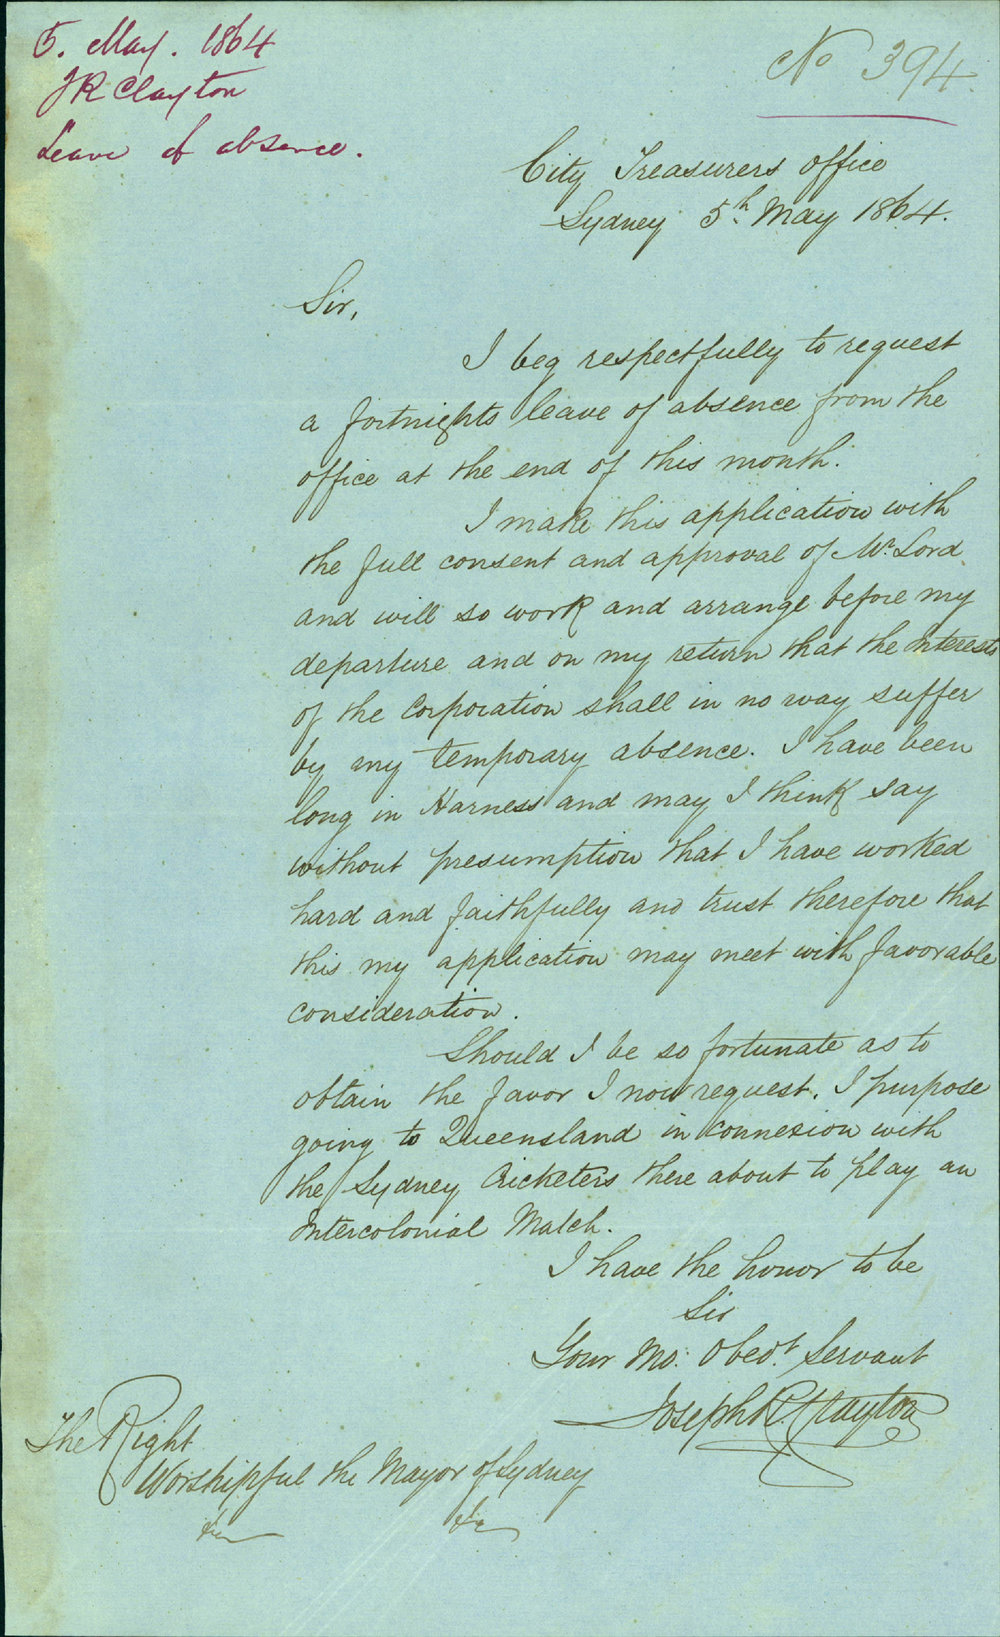 5. May. 1864
J R Clayton
Leave of absence.
No 394.
City Treasurers Office
Sydney 5th May 1864.
Sir,
I beg respectfully to request
a fortnights leave of absence from the
office at the end of this month.
I make this application with
the full consent and approval of Mr. Lord
and will so work and arrange before my
departure and on my return that the Interests
of the Corporation shall in no way suffer
by my temporary absence. I have been
long in Harness and may I think say
without presumption that I have worked
hard and faithfully and trust therefore that
this my application may meet with favorable
consideration.
Should I be so fortunate as to
obtain the favor I now request, I purpose
going to Queensland in connexion with
the Sydney Cricketers there about to play an
Intercolonial Match.
I have the honor to be
Sir
Your Mo: Obedt. Servant
Joseph R Clayton
The Right
Worshipful the Mayor of Sydney
&c &c